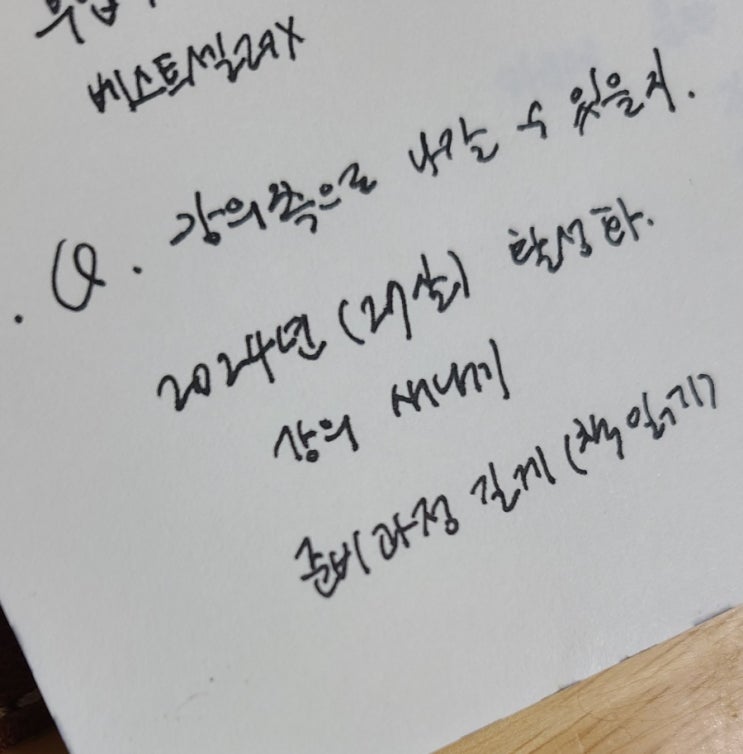 베스트셀러X
Q. 강의쪽으로 나갈 수 있을지.
2024년 (27살) 활성화.
강의 새내기
준비과정 길게 (책 읽기)